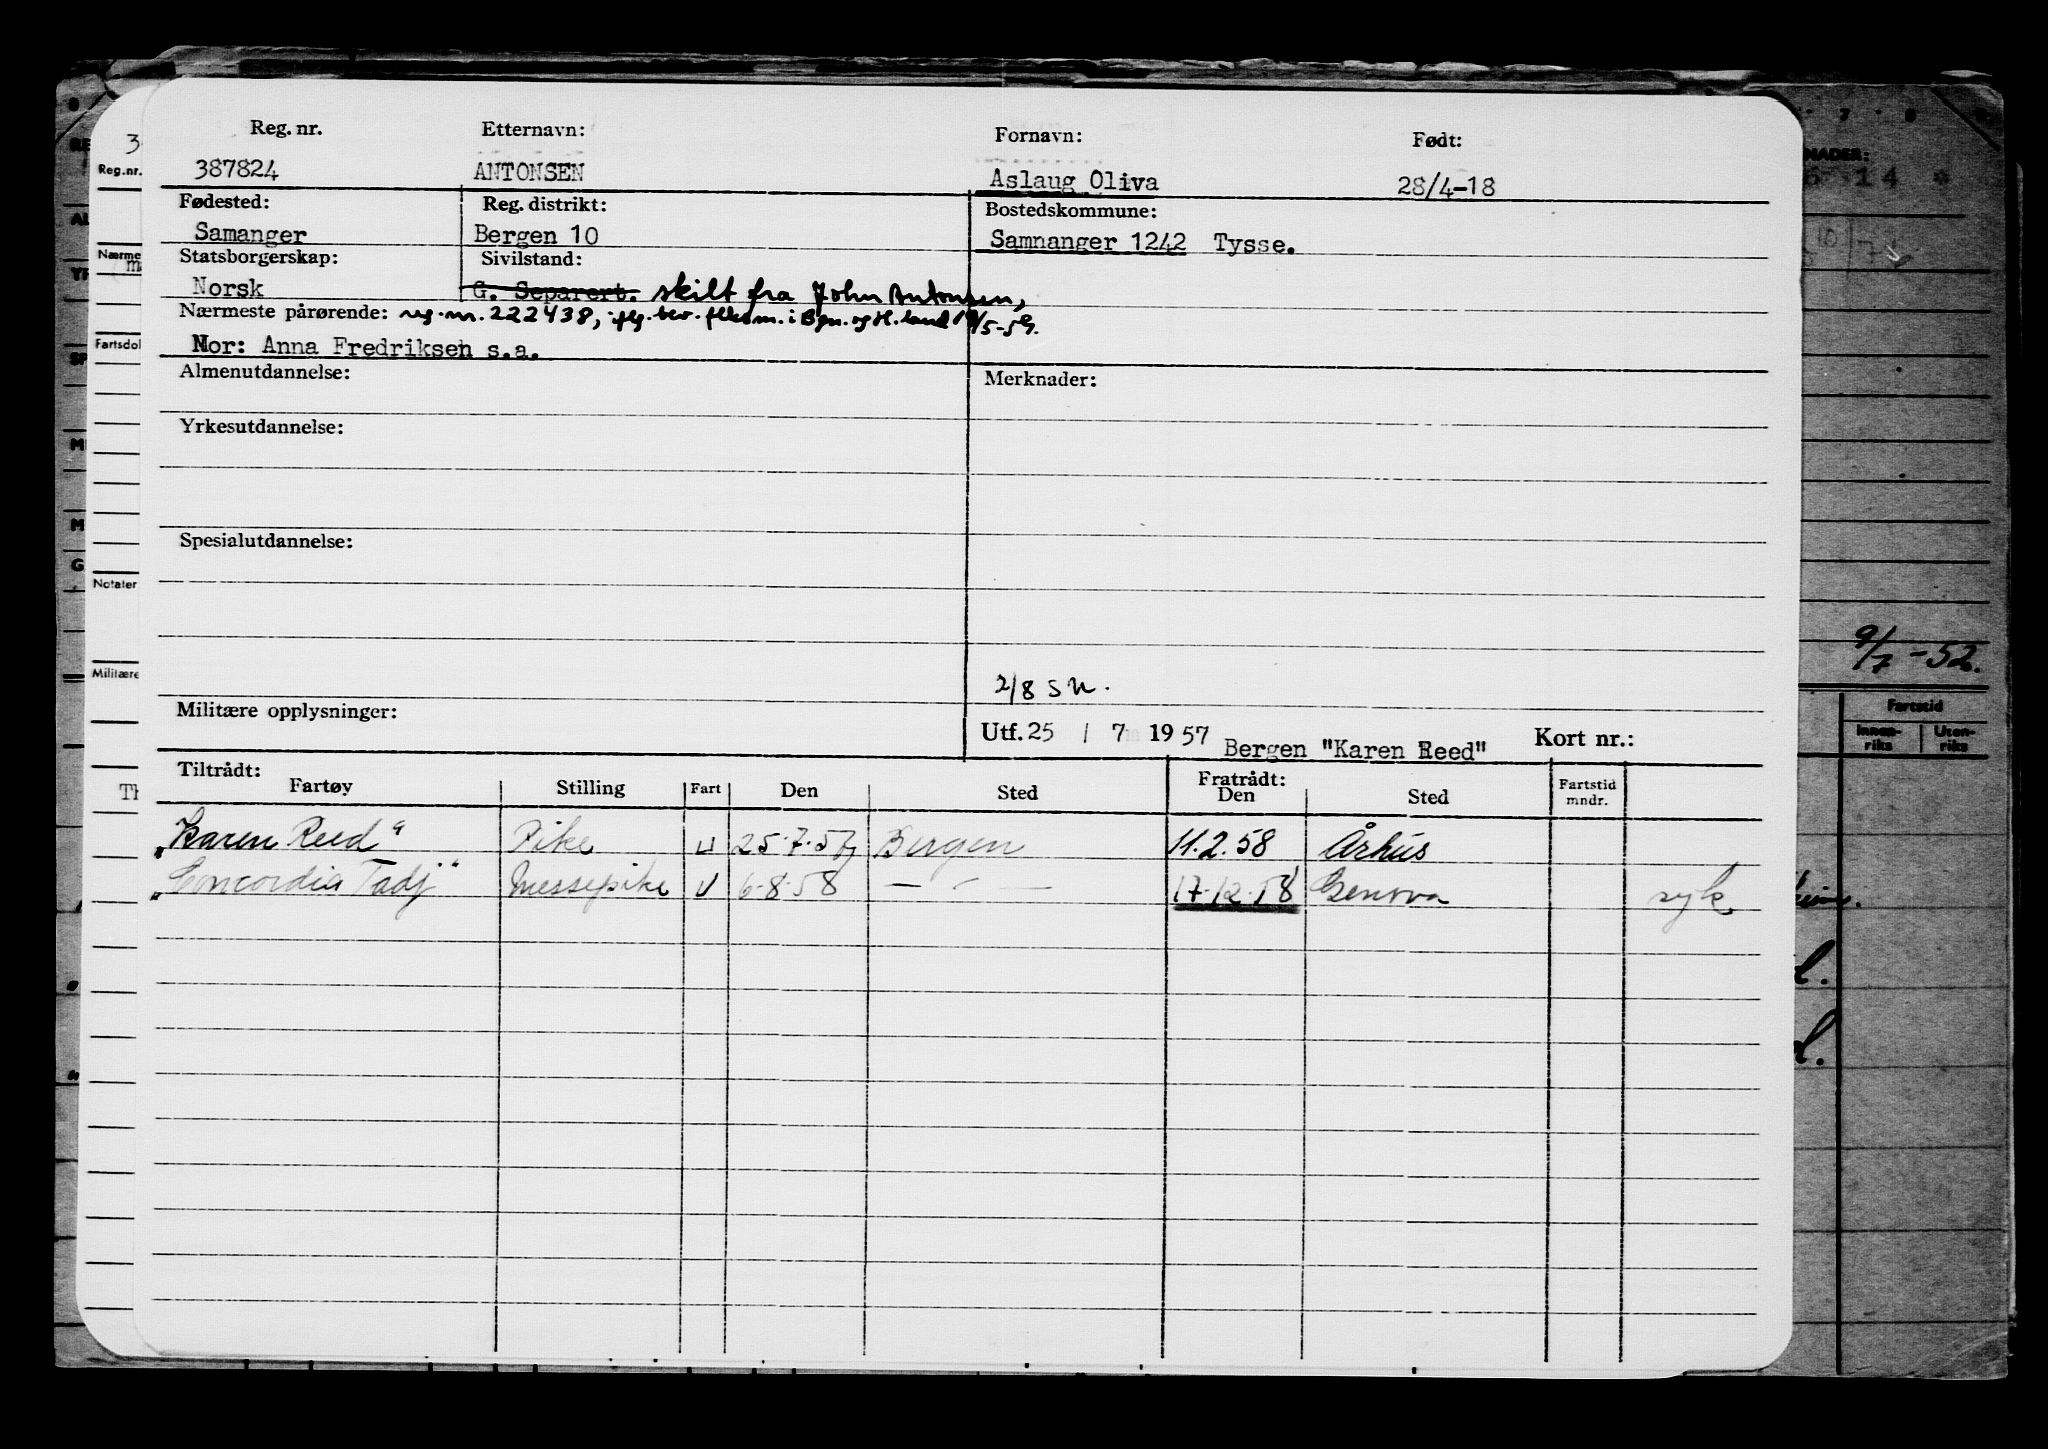 Reg. nr. Etternavn: Fornavn: Født:
387824 ANTONSEN Aslaug Oliva 28/4-18
Fødested: Reg. distrikt: Bostedskommune:
Samanger Bergen 10 Samnanger 1242 Tysse.
Statsborgerskap: Sivilstand:
Norsk G. Separert. skilt fra John Antonsen,
Nærmeste pårørende: reg. nr. 222438, iflg. bev. flkesm. i Bgn. og H. land /5-59.
Mor: Anna Fredriksen s.a.
Almenutdannelse: Merknader:
Yrkesutdannelse:
Spesialutdannelse:
2/8 SN.
Militære opplysninger:
Utf. 25 / 7 1957 Bergen "Karen Reed" Kort nr.:
Tiltrådt: Fratrådt:
Fartøy Stilling Fart Den Sted Den Sted Fartstid mndr.
"Karen Reed" Pike U 25.7.57 Bergen 11.2.58 Århus
"Concordia Tadj" Messepike U 6-8-58 — " — 17.12.58 Genova syk
Reg.nr.
Fartsdol
Notater
Militære
9/7-52.
Fartstid
Innen-riks Uten-riks